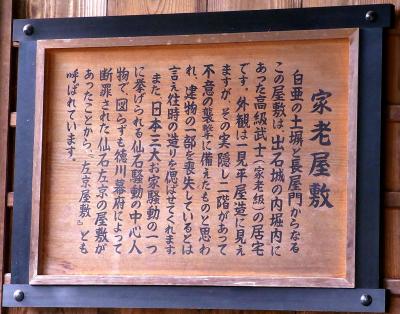 家老屋敷
白亜の土塀と長屋門からなる
この屋敷は、出石城の内堀内に
あった高級武士(家老級)の居宅
です。外観は一見平屋造に見え
ますが、その実隠し二階があって
不意の襲撃に備えたものと思わ
れ、建物の一部を喪失しているとは
言え往時の造りを偲ばせてくれます。
また、日本三大お家騒動の一つ
に挙げられる仙石騒動の中心人
物で、図らずも徳川幕府によって
断罪された仙石左京の屋敷が
あったことから、「左京屋敷」とも
呼ばれています。